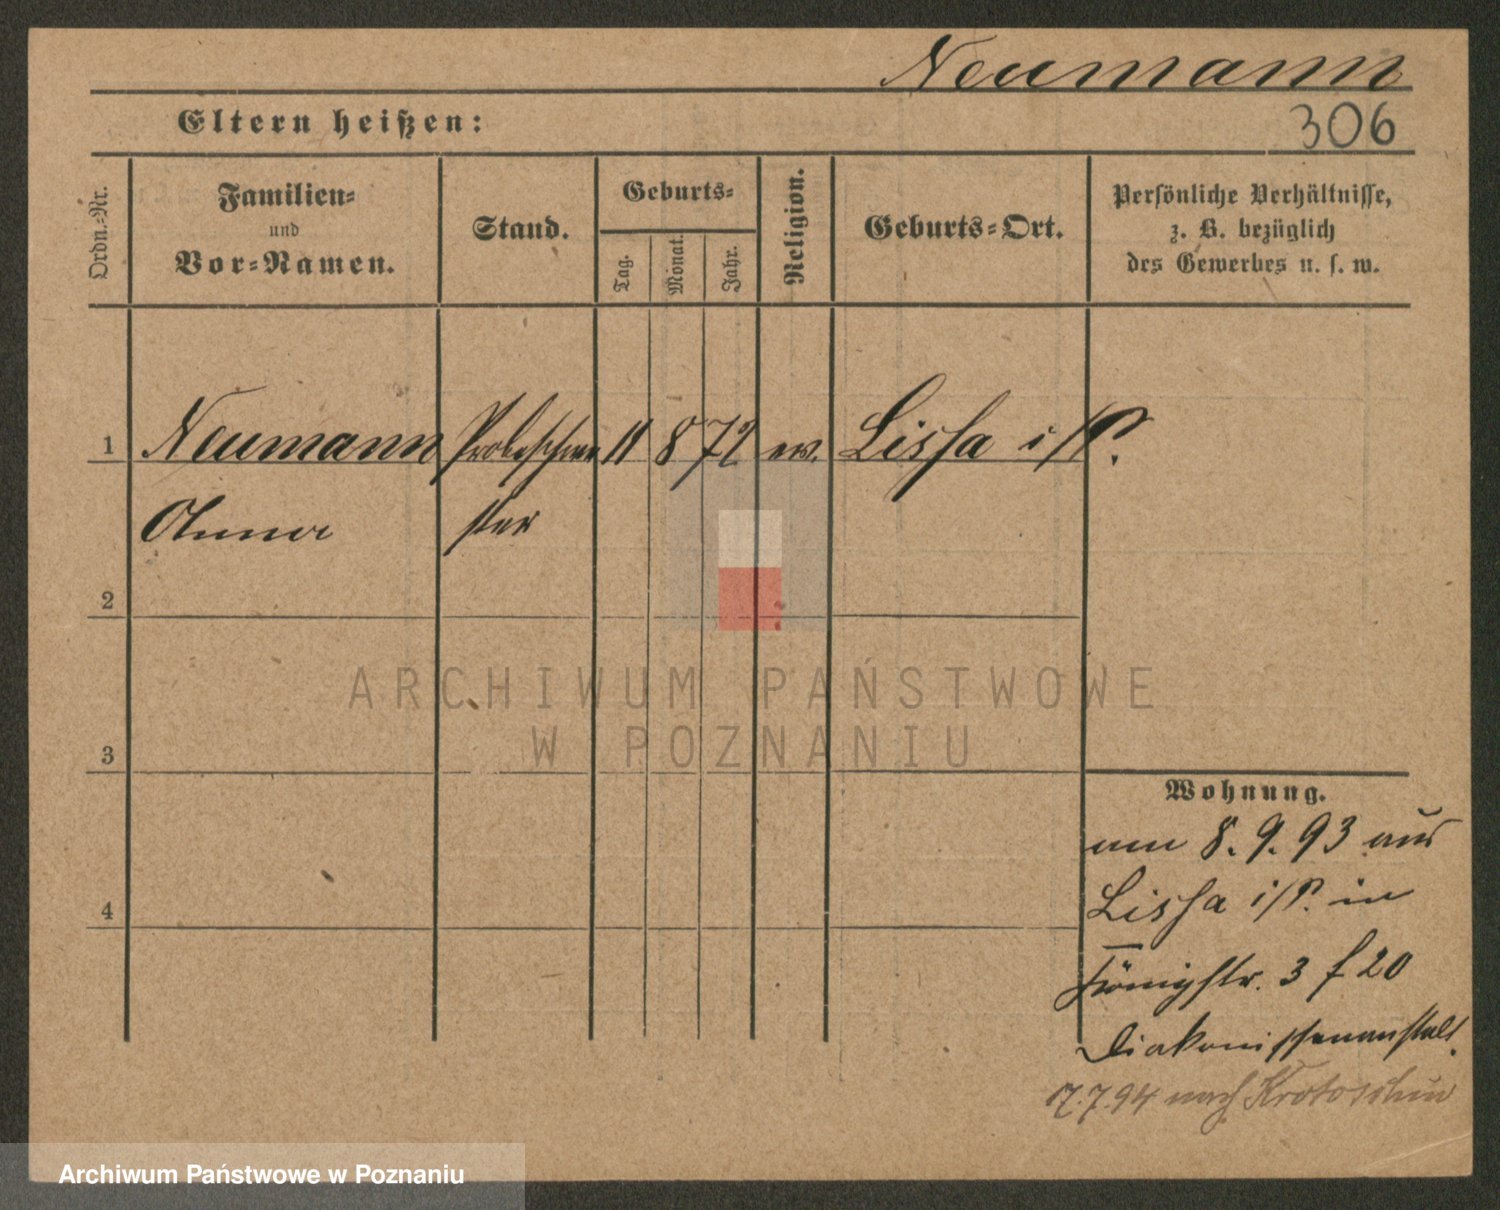 Neumann
Eltern heißen:
306
Ordn.-Nr.
Familien-
und
Vor-Namen.
Stand.
Geburts-
Tag.
Monat.
Jahr.
Religion.
Geburts-Ort.
Persönliche Verhältnisse,
z. B. bezüglich
des Gewerbes u. s. w.
1 Neumann Probeschwe 11 8 72 ev. Lissa i/P.
Anna ster
2
3
4
ARCHIWUM PAŃSTWOWE
W POZNANIU
Wohnung.
am 8. 9. 93 aus
Lissa i/P. in
Königstr. 3 f 20
Diakonissenanstalt.
17.7.94 nach Krotoschin
Archiwum Państwowe w Poznaniu